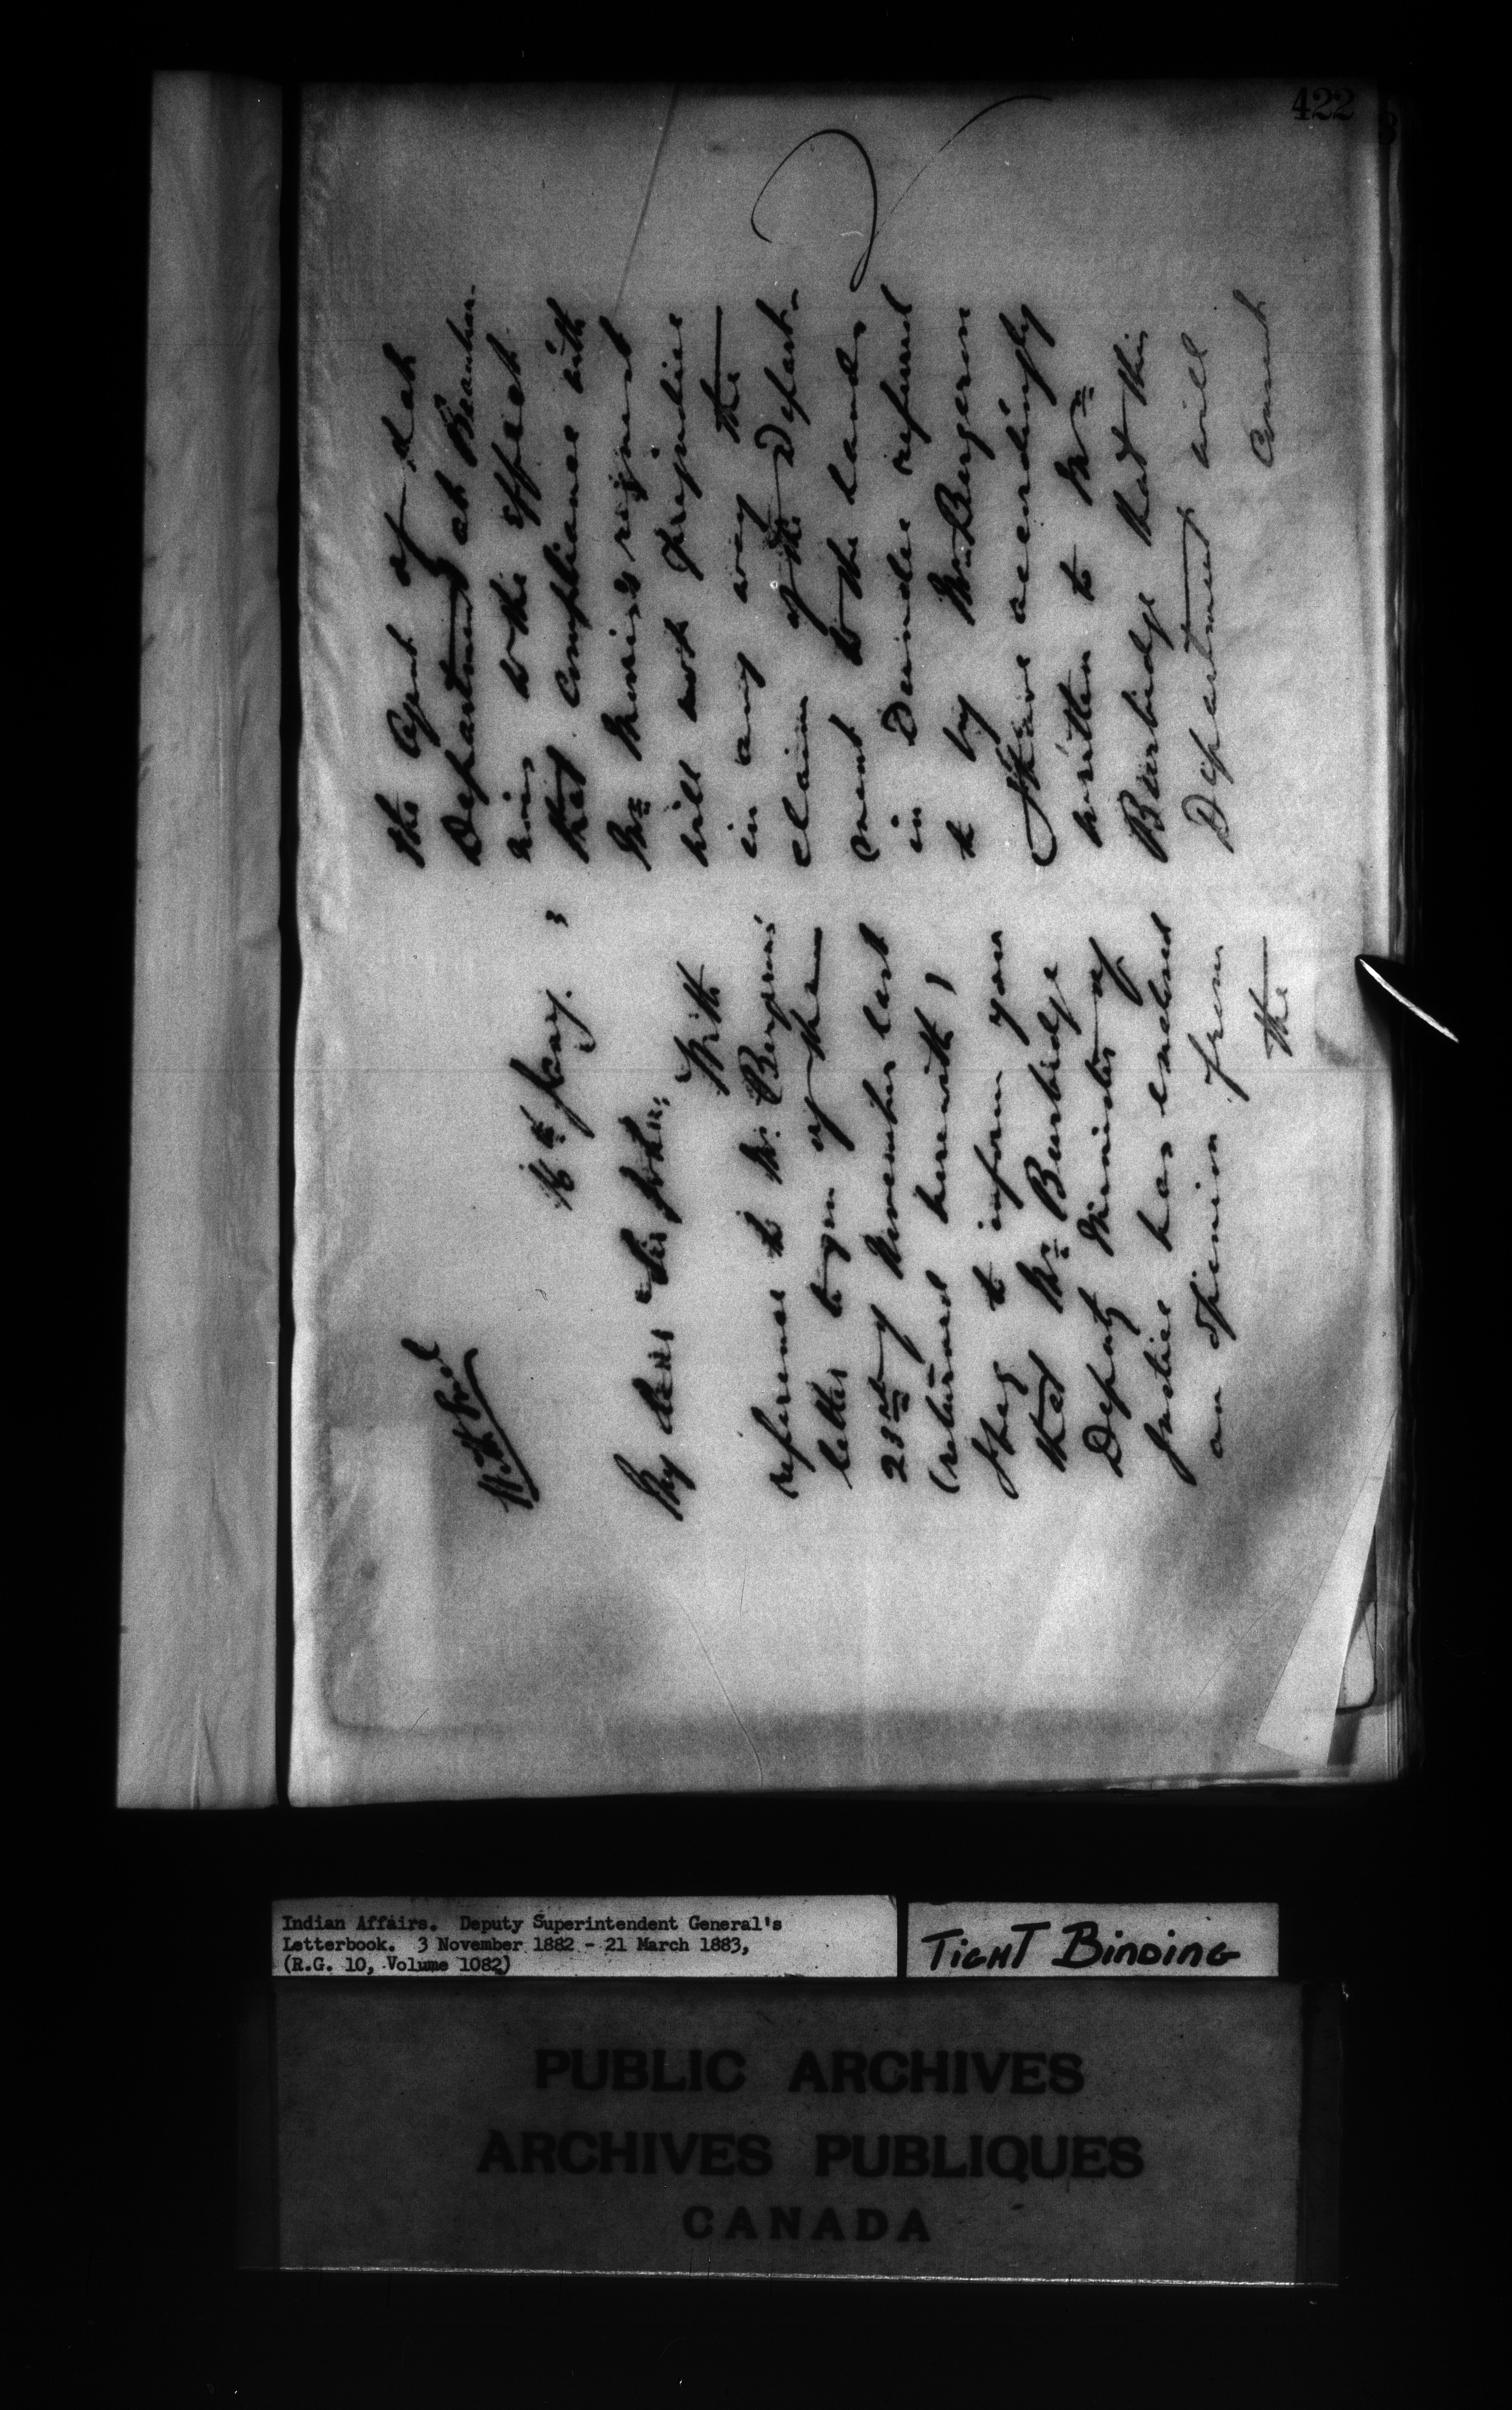 422
16th Jany. 3
My dear Sir John,
With
reference to Mr. Bergeron's
letter to you of the
23rd of November last
(returned herewith)
I beg to inform you
that Mr Burbidge
Deputy Minister of
Justice has enclosed
an opinion from
the
the Agent of that
Department at Beauhar-
nois to the effect
that compliance with
Mr request
will not prejudice
in any way the
claim of the Depart-
ment to the lands
in Dundee referred
to by Mr Bergeron
I have accordingly
written to Mr
Burbidge that this
Department will
Indian Affairs. Deputy Superintendent General's
Letterbook. 3 November 1882 - 21 March 1883,
(R.G. 10, Volume 1082)
TIGHT BINDING
PUBLIC ARCHIVES
ARCHIVES PUBLIQUES
CANADA